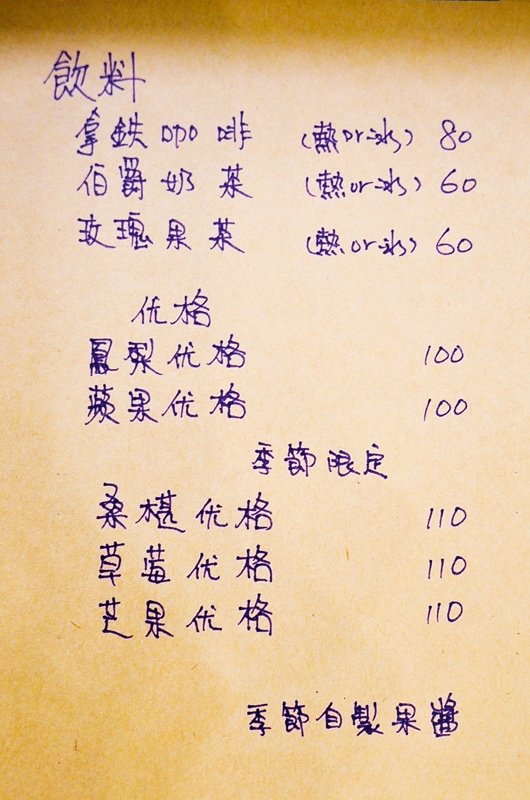 飲料
拿鉄咖啡 (熱or冰) 80
伯爵奶茶 (熱or冰) 60
玫瑰果茶 (熱or冰) 60
优格
鳳梨优格 100
蘋果优格 100
季節限定
桑椹优格 110
草莓优格 110
芒果优格 110
季節自製果醬